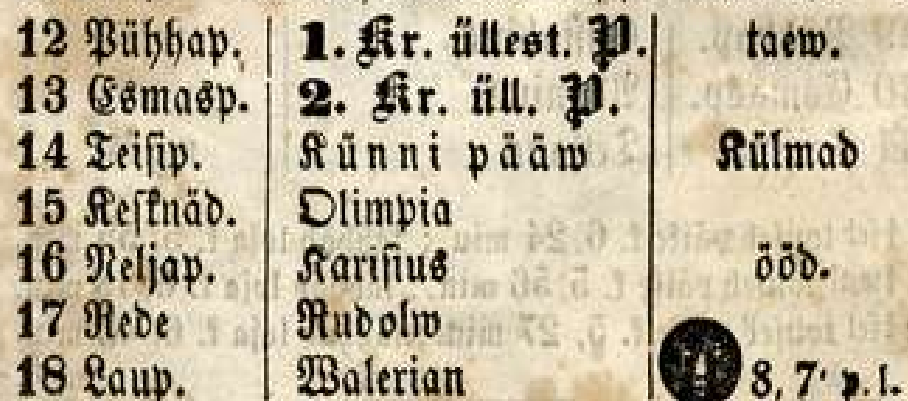 12 Pühhap. 1. Kr. üllest. P. taew.
13 Esmasp. 2. Kr. üll. P.
14 Teisip. Künni pääw Külmad
15 Kesknäd. Olimpia
16 Neljap. Karisius ööd.
17 Rede Rudolw
18 Laup. Walerian 8, 7' p. l.